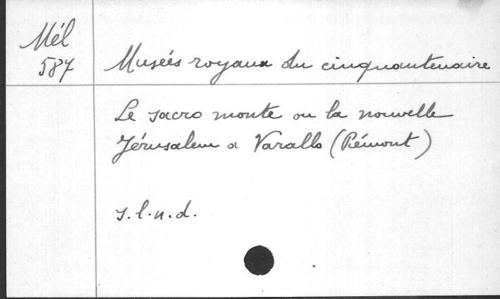 Mél
587
Musées royaux du cinquantenaire
Le sacro monte ou la nouvelle
Jérusalem a Varallo (Piémont)
s.l.n.d.